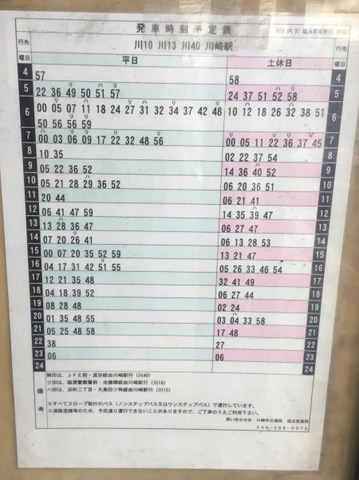 発車時刻予定表
行先 川10 川13 川40 川崎駅 行先
曜日 平日 土休日 曜日
4 57 58 4
5 22 36 49 50 51 57 24 37 51 52 58 5
6 00 05 07 11 18 24 27 31 32 37 42 48 10 12 18 26 32 38 51 6
50 56 56 59
7 00 03 06 09 17 22 32 48 56 00 05 11 22 36 37 45 7
8 10 35 02 22 37 54 8
9 05 22 36 52 14 36 40 52 9
10 05 21 28 29 36 52 06 20 36 51 10
11 20 44 06 21 41 11
12 06 41 47 59 14 35 39 47 12
13 13 28 36 47 06 27 44 54 13
14 07 20 26 41 06 13 28 53 14
15 00 07 20 35 52 59 13 21 47 15
16 04 17 31 42 51 55 05 26 33 46 54 16
17 12 21 35 48 56 32 41 49 17
18 04 18 39 52 06 27 44 18
19 08 28 48 02 24 19
20 01 35 48 55 03 04 33 58 20
21 05 25 48 58 17 48 21
22 38 27 22
23 06 06 23
24 24
備考
無印は、JFE前・渡田経由川崎駅行(川40)
ハ印は、浜町二丁目・大島四ツ角経由川崎駅行(川13)
※すべてスロープ板付のバス(ノンステップバス又はワンステップバス)で運行しています。
※道路混雑等のため、予定通り運行できないことがありますので、ご了承のうえご利用下さい。
問い合わせ先 川崎市交通局 塩浜営業所